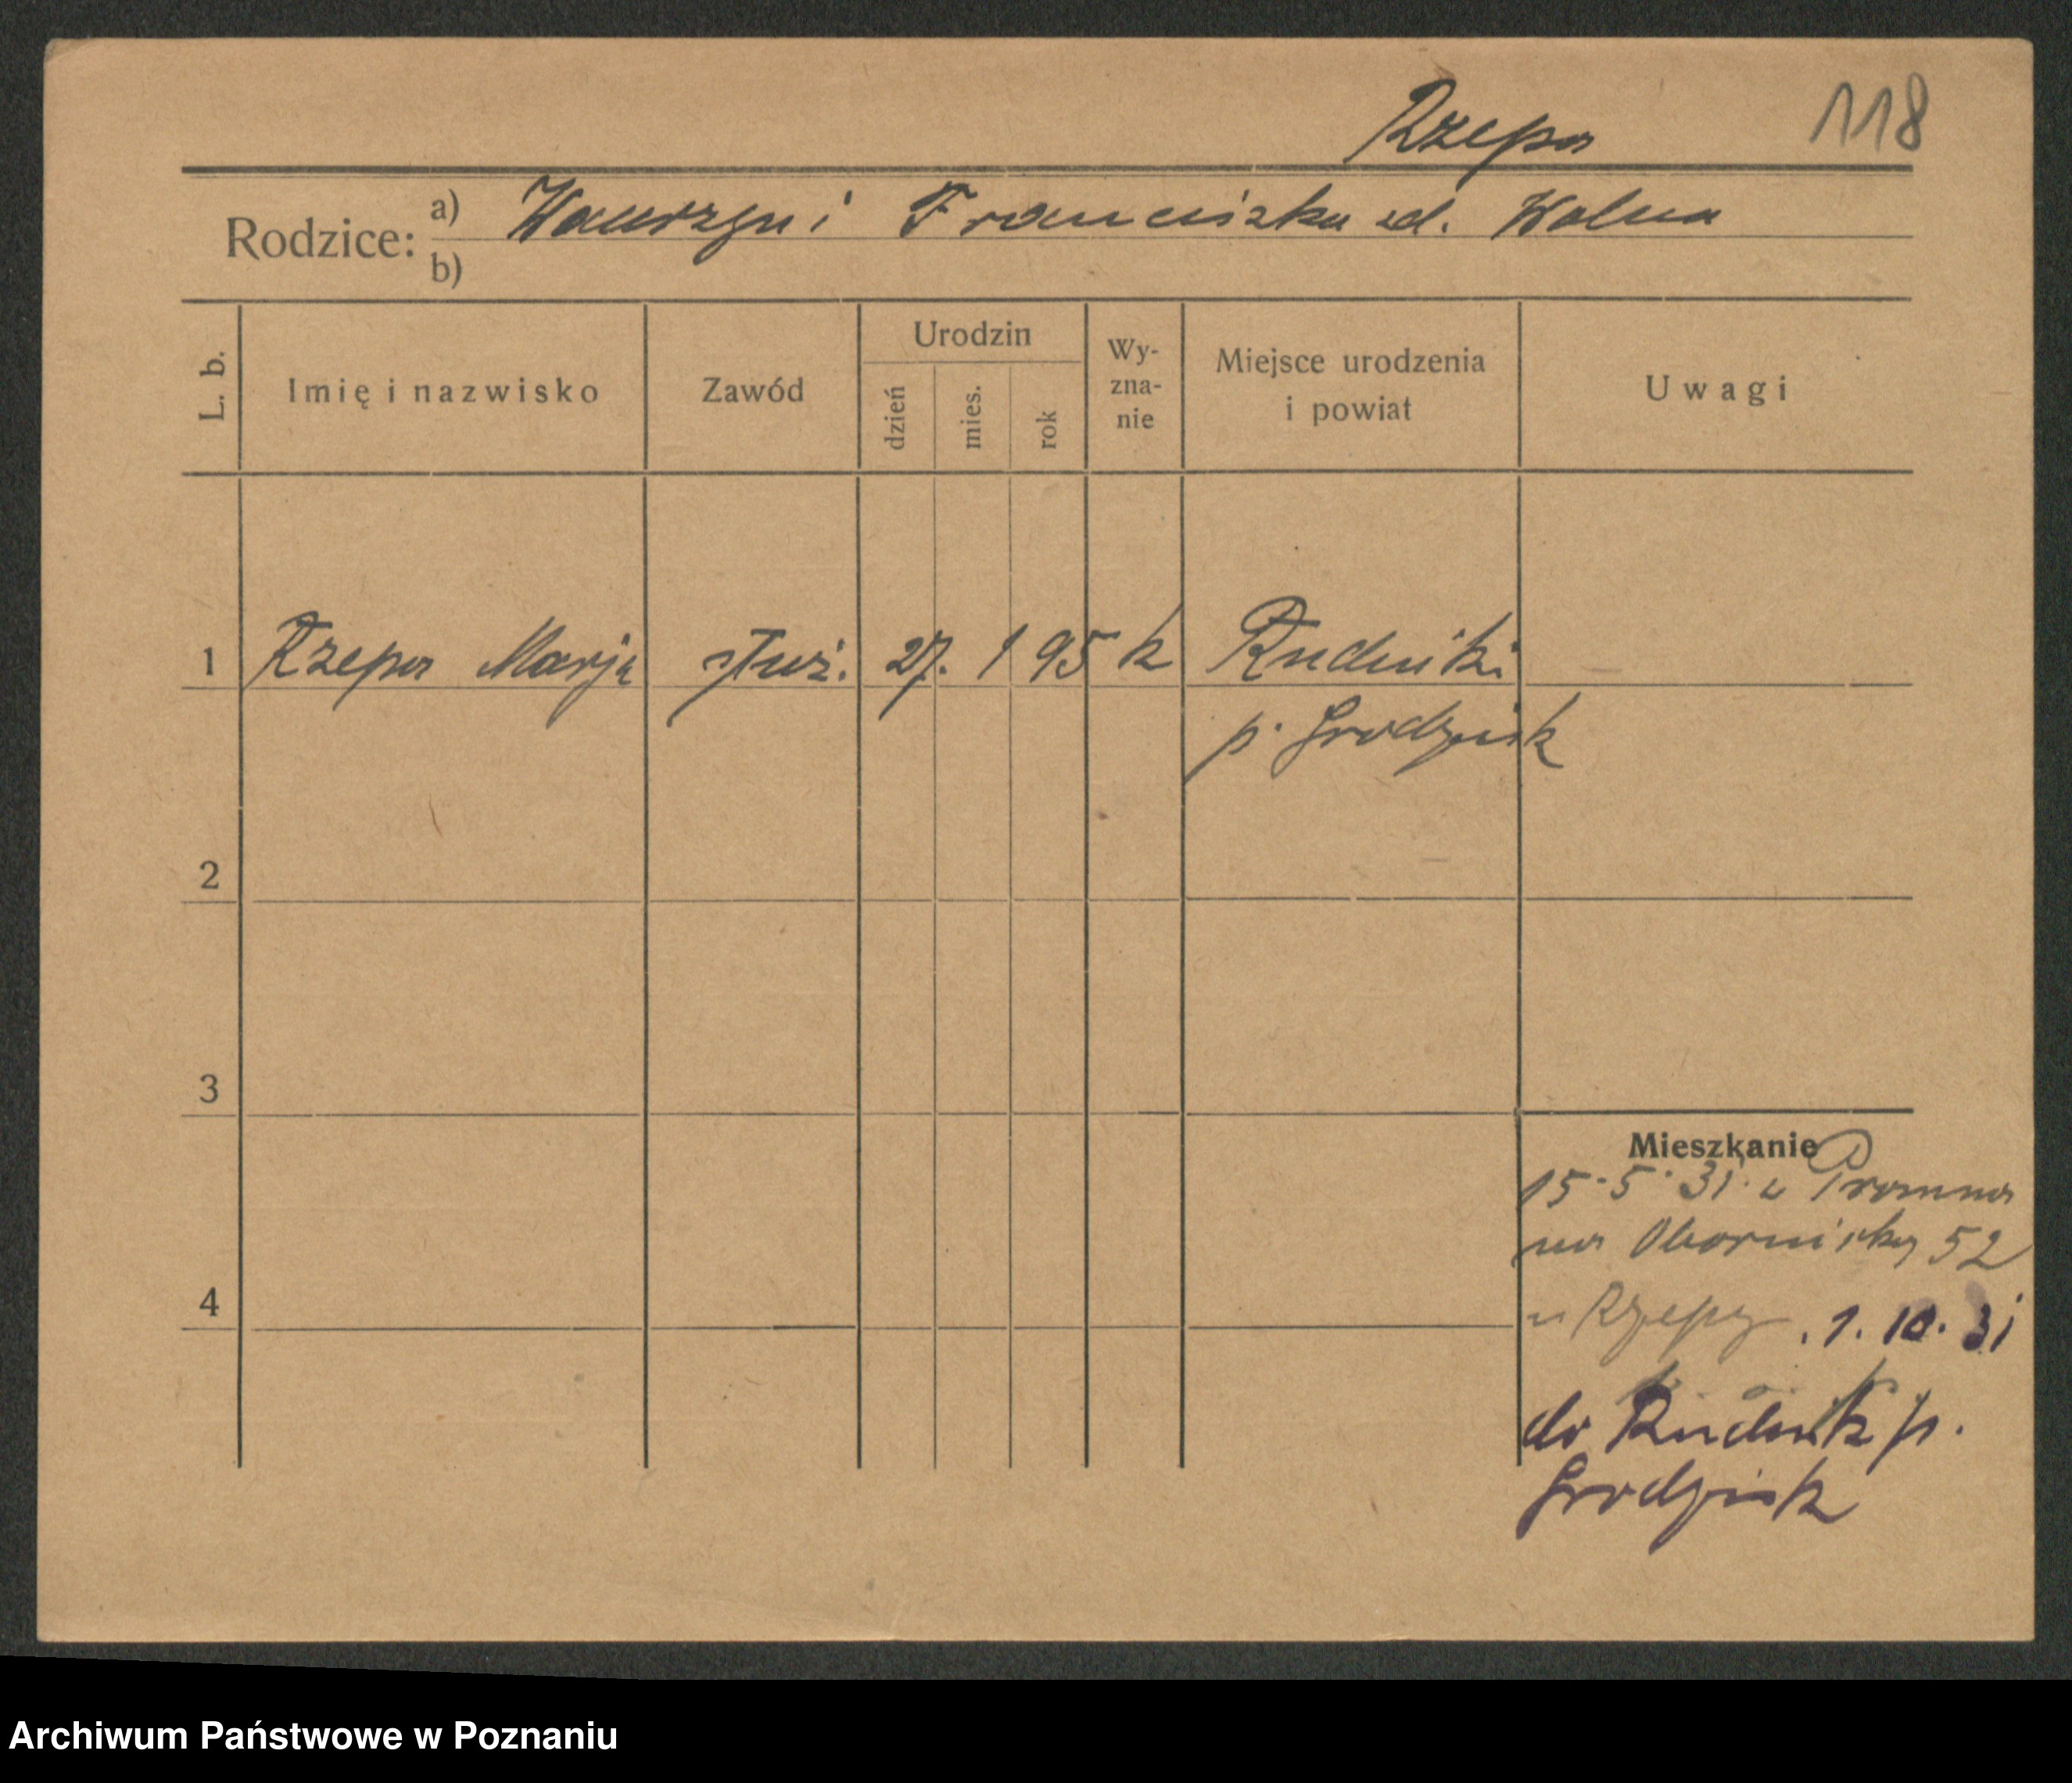 Rzepa 118
Rodzice: a) Wawrzyn i Franciszka zd. Wolna
b)
L. b. Imię i nazwisko Zawód Urodzin dzień mies. rok Wyzna-nie Miejsce urodzenia i powiat Uwagi
1 Rzepa Marja służ. 27. 1 95 k Rudniki
p. Grodzisk
2
3
Mieszkanie
15.5.31. z Promna
na Obornicką 52
4
u Rzepy . 1. 10. 31
do Rudnik p.
Grodzisk
Archiwum Państwowe w Poznaniu